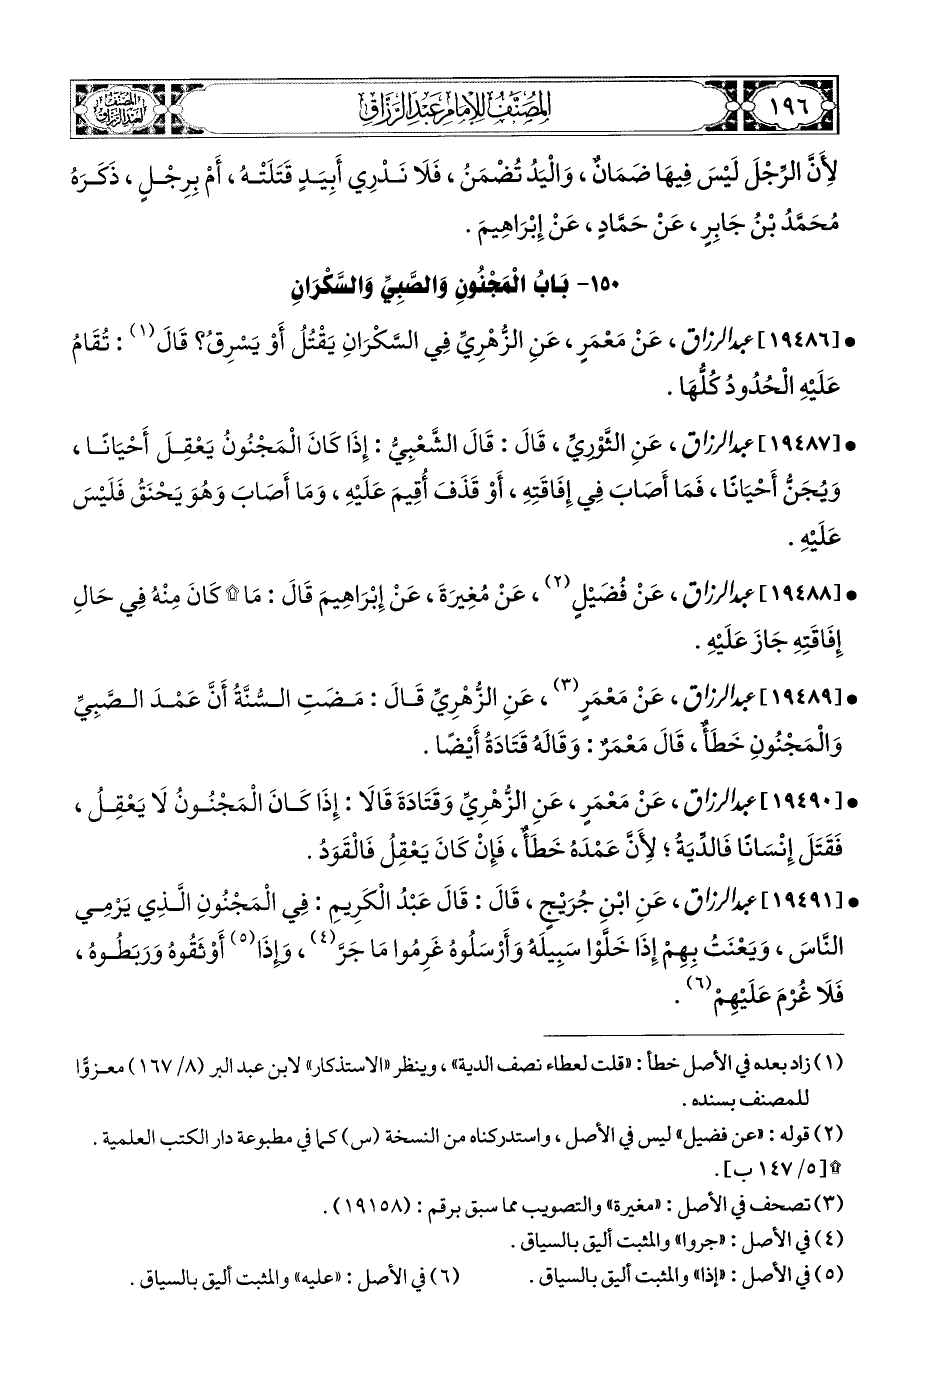 ١٩٦
المصنف للإمام عبد الرزاق
المصنف
لعبد الرزاق
لِأَنَّ الرِّجْلَ لَيْسَ فِيهَا ضَمَانٌ ، وَالْيَدُ تُضْمَنُ ، فَلَا نَدْرِي أَبِيَدٍ قَتَلَتْهُ ، أَمْ بِرِجْلٍ ، ذَكَرَهُ
مُحَمَّدُ بْنُ جَابِرٍ ، عَنْ حَمَّادٍ ، عَنْ إِبْرَاهِيمَ .
١٥٠- بَابُ الْمَجْنُونِ وَالصَّبِيِّ وَالسَّكْرَانِ
• [١٩٤٨٦] عبد الرزاق ، عَنْ مَعْمَرٍ ، عَنِ الزُّهْرِيِّ فِي السَّكْرَانِ يَقْتُلُ أَوْ يَسْرِقُ؟ قَالَ (١) : تُقَامُ
عَلَيْهِ الْحُدُودُ كُلُّهَا .
• [١٩٤٨٧] عبد الرزاق ، عَنِ الثَّوْرِيِّ ، قَالَ : قَالَ الشَّعْبِيُّ : إِذَا كَانَ الْمَجْنُونُ يَعْقِلَ أَحْيَانًا ،
وَيُجَنُّ أَحْيَانًا ، فَمَا أَصَابَ فِي إِفَاقَتِهِ ، أَوْ قَذَفَ أُقِيمَ عَلَيْهِ ، وَمَا أَصَابَ وَهُوَ يَحْنَقُ فَلَيْسَ
عَلَيْهِ .
• [١٩٤٨٨] عبد الرزاق ، عَنْ فُضَيْلٍ (٢) ، عَنْ مُغِيرَةَ ، عَنْ إِبْرَاهِيمَ قَالَ : مَا ۩ كَانَ مِنْهُ فِي حَالِ
إِفَاقَتِهِ جَازَ عَلَيْهِ .
• [١٩٤٨٩] عبد الرزاق ، عَنْ مَعْمَرٍ (٣) ، عَنِ الزُّهْرِيِّ قَالَ : مَضَتِ السُّنَّةُ أَنَّ عَمْدَ الصَّبِيِّ
وَالْمَجْنُونِ خَطَأٌ ، قَالَ مَعْمَرٌ : وَقَالَهُ قَتَادَةُ أَيْضًا .
• [١٩٤٩٠] عبد الرزاق ، عَنْ مَعْمَرٍ ، عَنِ الزُّهْرِيِّ وَقَتَادَةَ قَالَا : إِذَا كَانَ الْمَجْنُونُ لَا يَعْقِلُ ،
فَقَتَلَ إِنْسَانًا فَالدِّيَةُ ؛ لِأَنَّ عَمْدَهُ خَطَأٌ ، فَإِنْ كَانَ يَعْقِلُ فَالْقَوَدُ .
• [١٩٤٩١] عبد الرزاق ، عَنِ ابْنِ جُرَيْجٍ ، قَالَ : قَالَ عَبْدُ الْكَرِيمِ : فِي الْمَجْنُونِ الَّذِي يَرْمِي
النَّاسَ ، وَيَعْنَتُ بِهِمْ إِذَا خَلَّوْا سَبِيلَهُ وَأَرْسَلُوهُ غَرِمُوا مَا جَرَّ (٤) ، وَإِذَا (٥) أَوْثَقُوهُ وَرَبَطُوهُ ،
فَلَا غُرْمَ عَلَيْهِمْ (٦) .
(١) زاد بعده في الأصل خطأ : «قلت لعطاء نصف الدية» ، وينظر «الاستذكار» لابن عبد البر (٨/ ١٦٧) معزوًّا
للمصنف بسنده .
(٢) قوله : «عن فضيل» ليس في الأصل ، واستدركناه من النسخة (س) كما في مطبوعة دار الكتب العلمية .
۩ [٥/ ١٤٧ ب] .
(٣) تصحف في الأصل : «مغيرة» والتصويب مما سبق برقم : (١٩١٥٨) .
(٤) في الأصل : «جروا» والمثبت أليق بالسياق .
(٥) في الأصل : «إذا» والمثبت أليق بالسياق . (٦) في الأصل : «عليه» والمثبت أليق بالسياق .